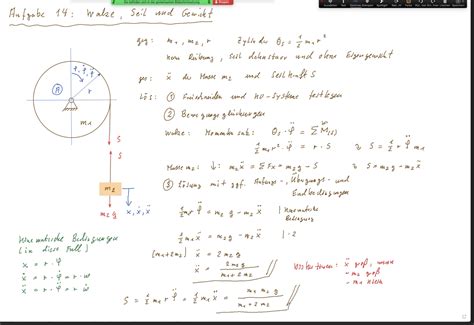 Aufgabe 14: Walze, Seil und Gewicht
geg: m1, m2, r Zylinder Θs = 1/2 m1 r²
keine Reibung, Seil dehnstarr und ohne Eigengewicht
ges: ẍ der Masse m2 und Seilkraft S
Lös: ① Freischneiden und KO-Systeme festlegen
② Bewegungsgleichungen
Walze: Momentensatz: Θs · φ̈ = ΣM(s)
1/2 m1 r² · φ̈ = r · S
Masse m2: ↓: m2 ẍ = ΣFx = m2 g - S ⇒ S = m2 g - m2 ẍ
③ Lösung mit ggf. Anfangs-, Übergangs- und
Endbedingungen
A
r
m1
S
S
m2
m2 g
x, ẋ, ẍ
= m2 g - m2 ẍ | kinematische
Bedingung
1/2 m1 ẍ = m2 g - m2 ẍ | · 2
(m1 + 2m2) ẍ = 2 m2 g
ẍ = 2 m2 g / (m1 + 2 m2)
S = 1/2 m1 r φ̈ = 1/2 m1 ẍ = m1 m2 g / (m1 + 2 m2)
Kinematische Bedingungen
(in diesem Fall)
x = r · φ
ẋ = r · φ̇ = r · ω
ẍ = r · φ̈ = r · ω̇
ẍ groß, wenn
- m2 groß
- m1 klein